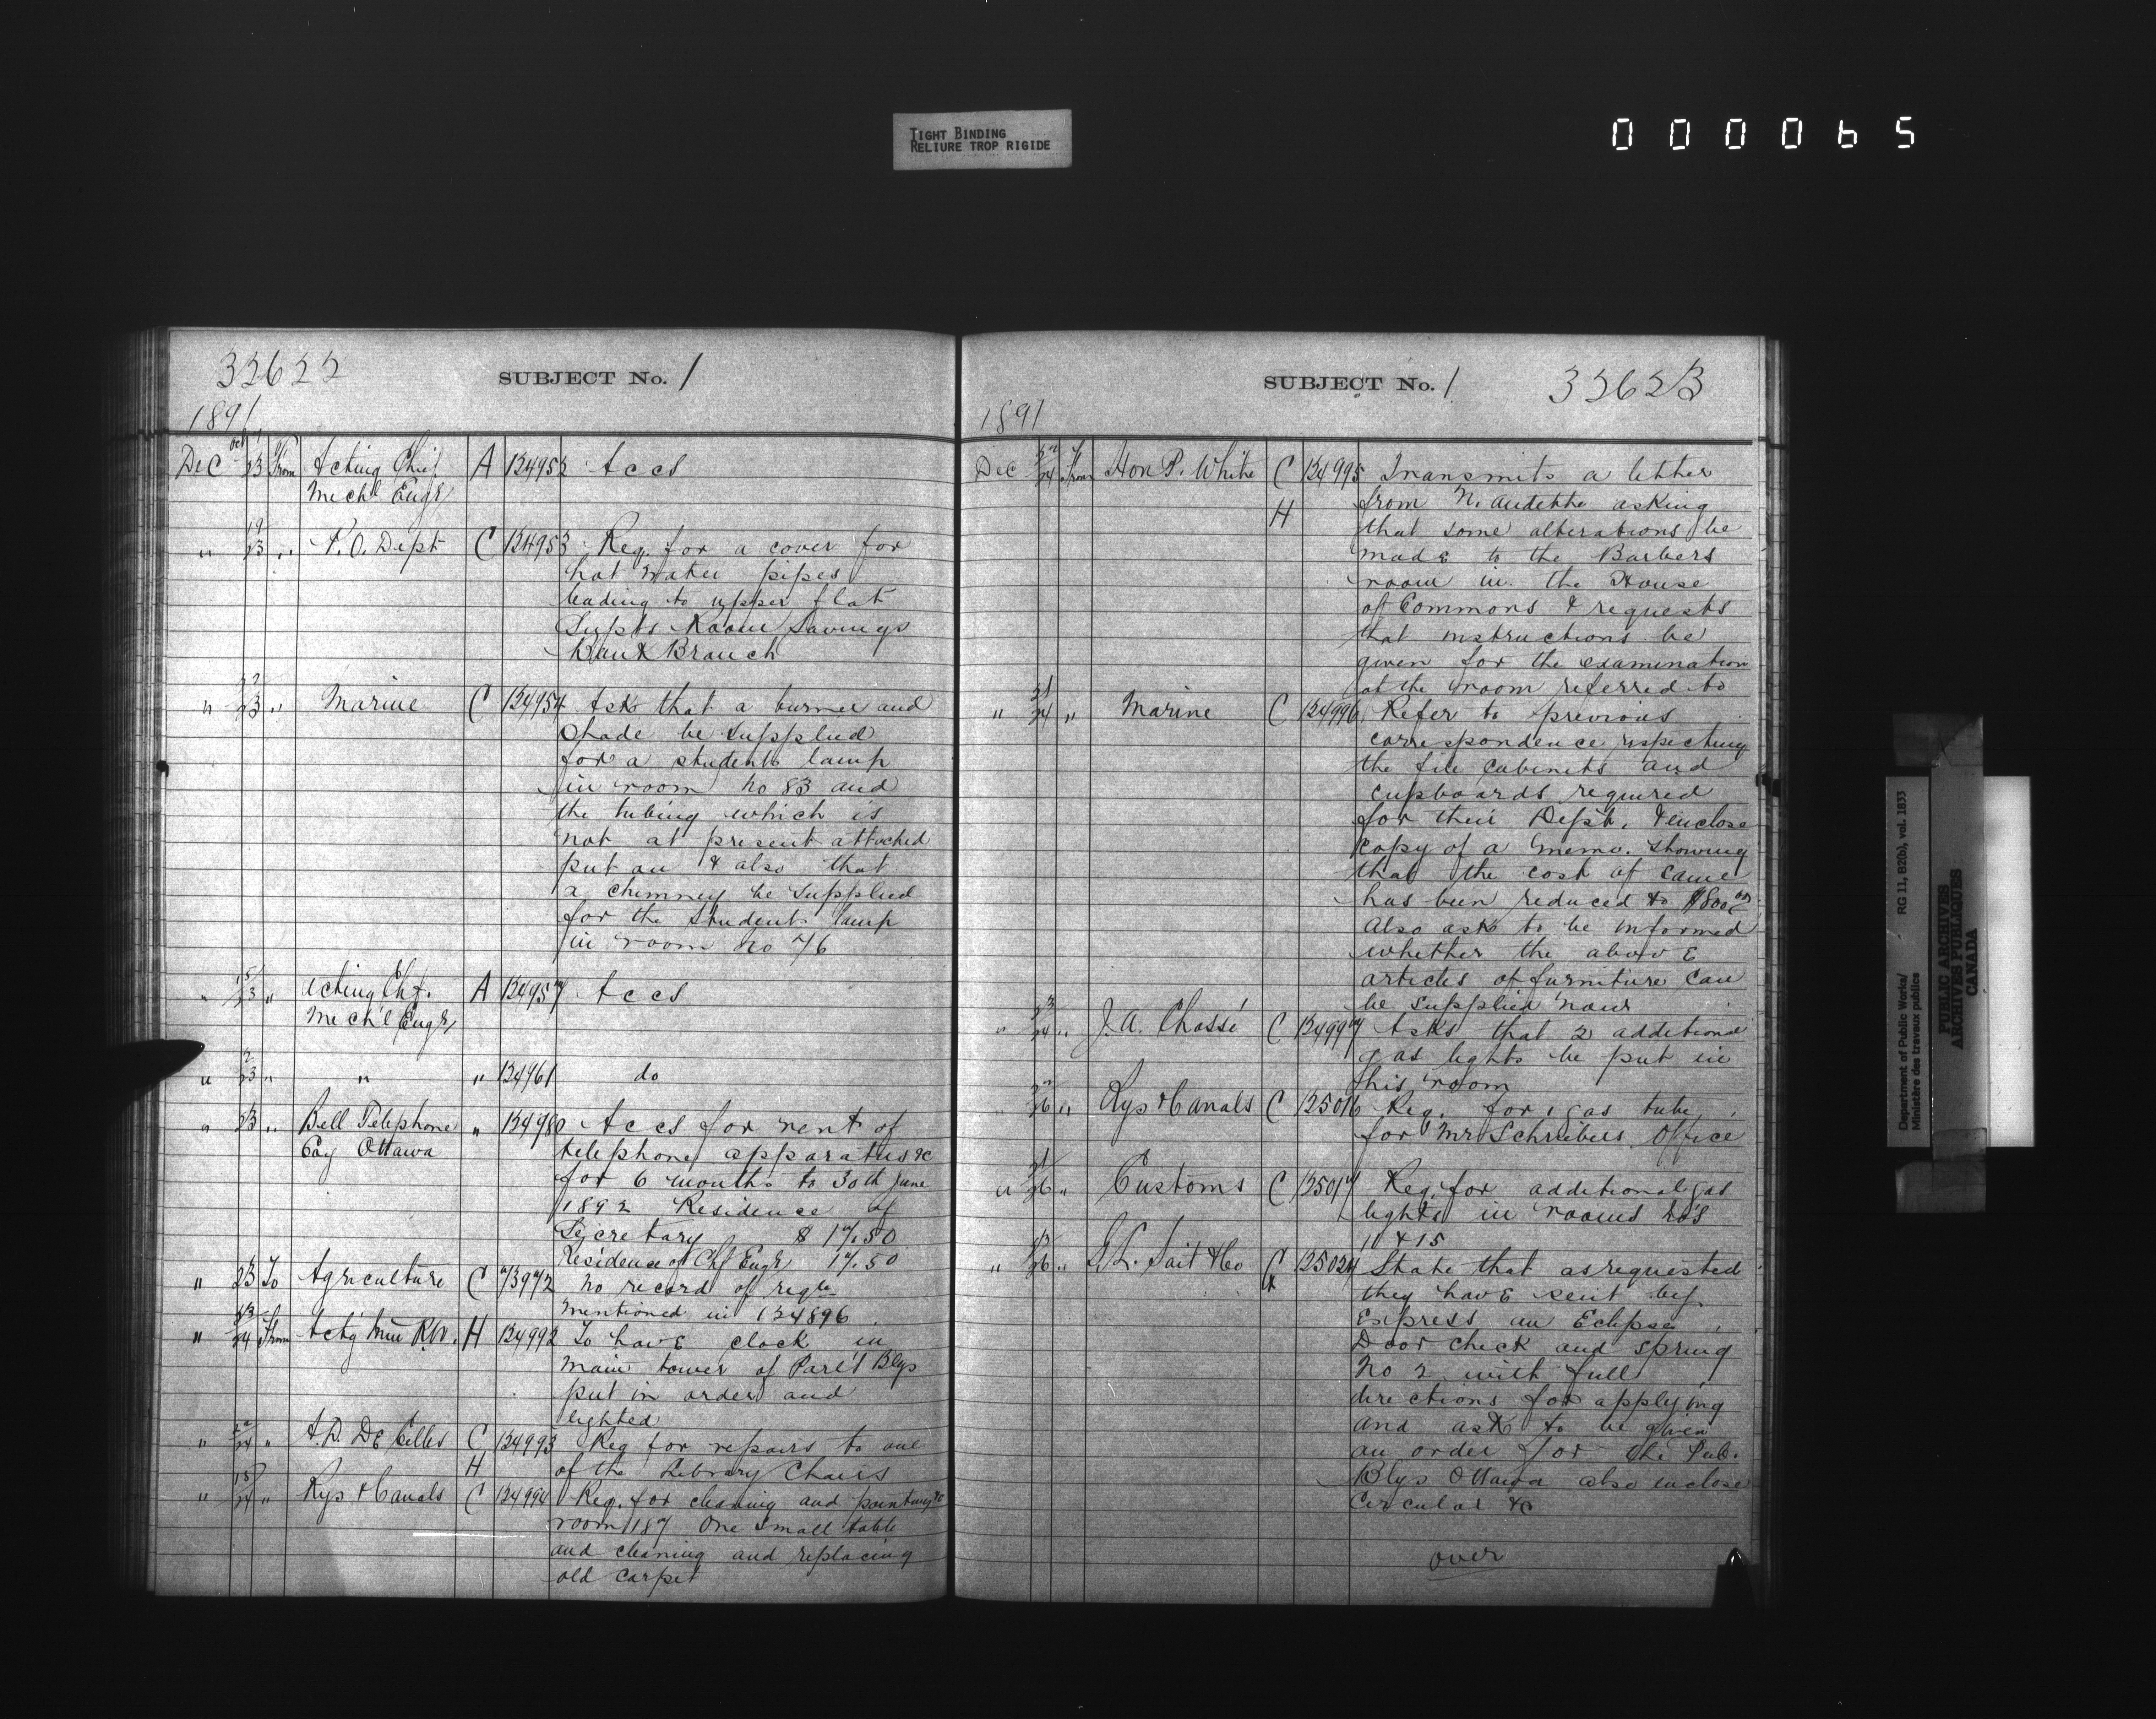 TIGHT BINDING
RELIURE TROP RIGIDE
000065
33622
SUBJECT No. 1
1891
Dec 23 From Acting Chief A 134952 Accs
Mech'l Engr
" 19/23 " P.O. Dept C 134953 Req. for a cover for
hot water pipes
leading to upper flat
Supts Room Savings
Bank Branch
" 22/23 " Marine C 134954 Asks that a burner and
Shade be supplied
for a students lamp
in room No 83 and
the tubing which is
not at present attached
put on & also that
a chimney be supplied
for the student lamp
in room No 76
" 15/23 " Acting Chf. A 134957 Accs
Mech'l Engr
" 2/23 " " " 134961 do
" 23 " Bell Telephone " 134980 Accs for rent of
Coy Ottawa telephone apparatus &c
for 6 months to 30th June
1892 Residence of
Secretary $ 17.50
Residence of Chf Engr 17.50
" 23 To Agriculture C 73972 No record of reqte
mentioned in 134896
" 23/24 From Actg Min R.W. H 134992 To have clock in
main tower of Parl't Blgs
put in order and
lighted
" 22/24 " A.D. De Celles C 134993 Req for repairs to one
H of the Library Chairs
" 18/24 " Rys & Canals C 134994 Req. for cleaning and painting &c
room 187 One small table
and cleaning and replacing
old carpet
SUBJECT No. 1
3362B
1891
Dec 22/24 From Hon P. White C 134995 Transmits a letter
H from N. Audette asking
that some alterations be
made to the Barbers
room in the House
of Commons & requests
that instructions be
given for the examination
of the room referred to
" 21/24 " Marine C 134996 Refer to previous
correspondence respecting
the file cabinets and
cupboards required
for their Dept. & enclose
copy of a memo. showing
that the cost of same
has been reduced to $800.00
Also ask to be informed
whether the above
articles of furniture can
be supplied now
" 23/24 " J.A. Chassé C 134997 Asks that 2 additional
gas lights be put in
his room
" 22/26 " Rys & Canals C 125016 Req. for 1 gas tube
for Mr Schreibers Office
" 21/26 " Customs C 125017 Req. for additional gas
lights in rooms Nos
11 & 15
" 23/26 " Sait & Co C 125024 State that as requested
they have sent by
Express an Eclipse
Door check and spring
No 2 with full
directions for applying
and ask to be given
an order for the Pub.
Blgs Ottawa also enclose
Circular &c
over
Department of Public Works/
Ministère des travaux publics
RG 11, B2(b), vol. 1833
PUBLIC ARCHIVES
ARCHIVES PUBLIQUES
CANADA